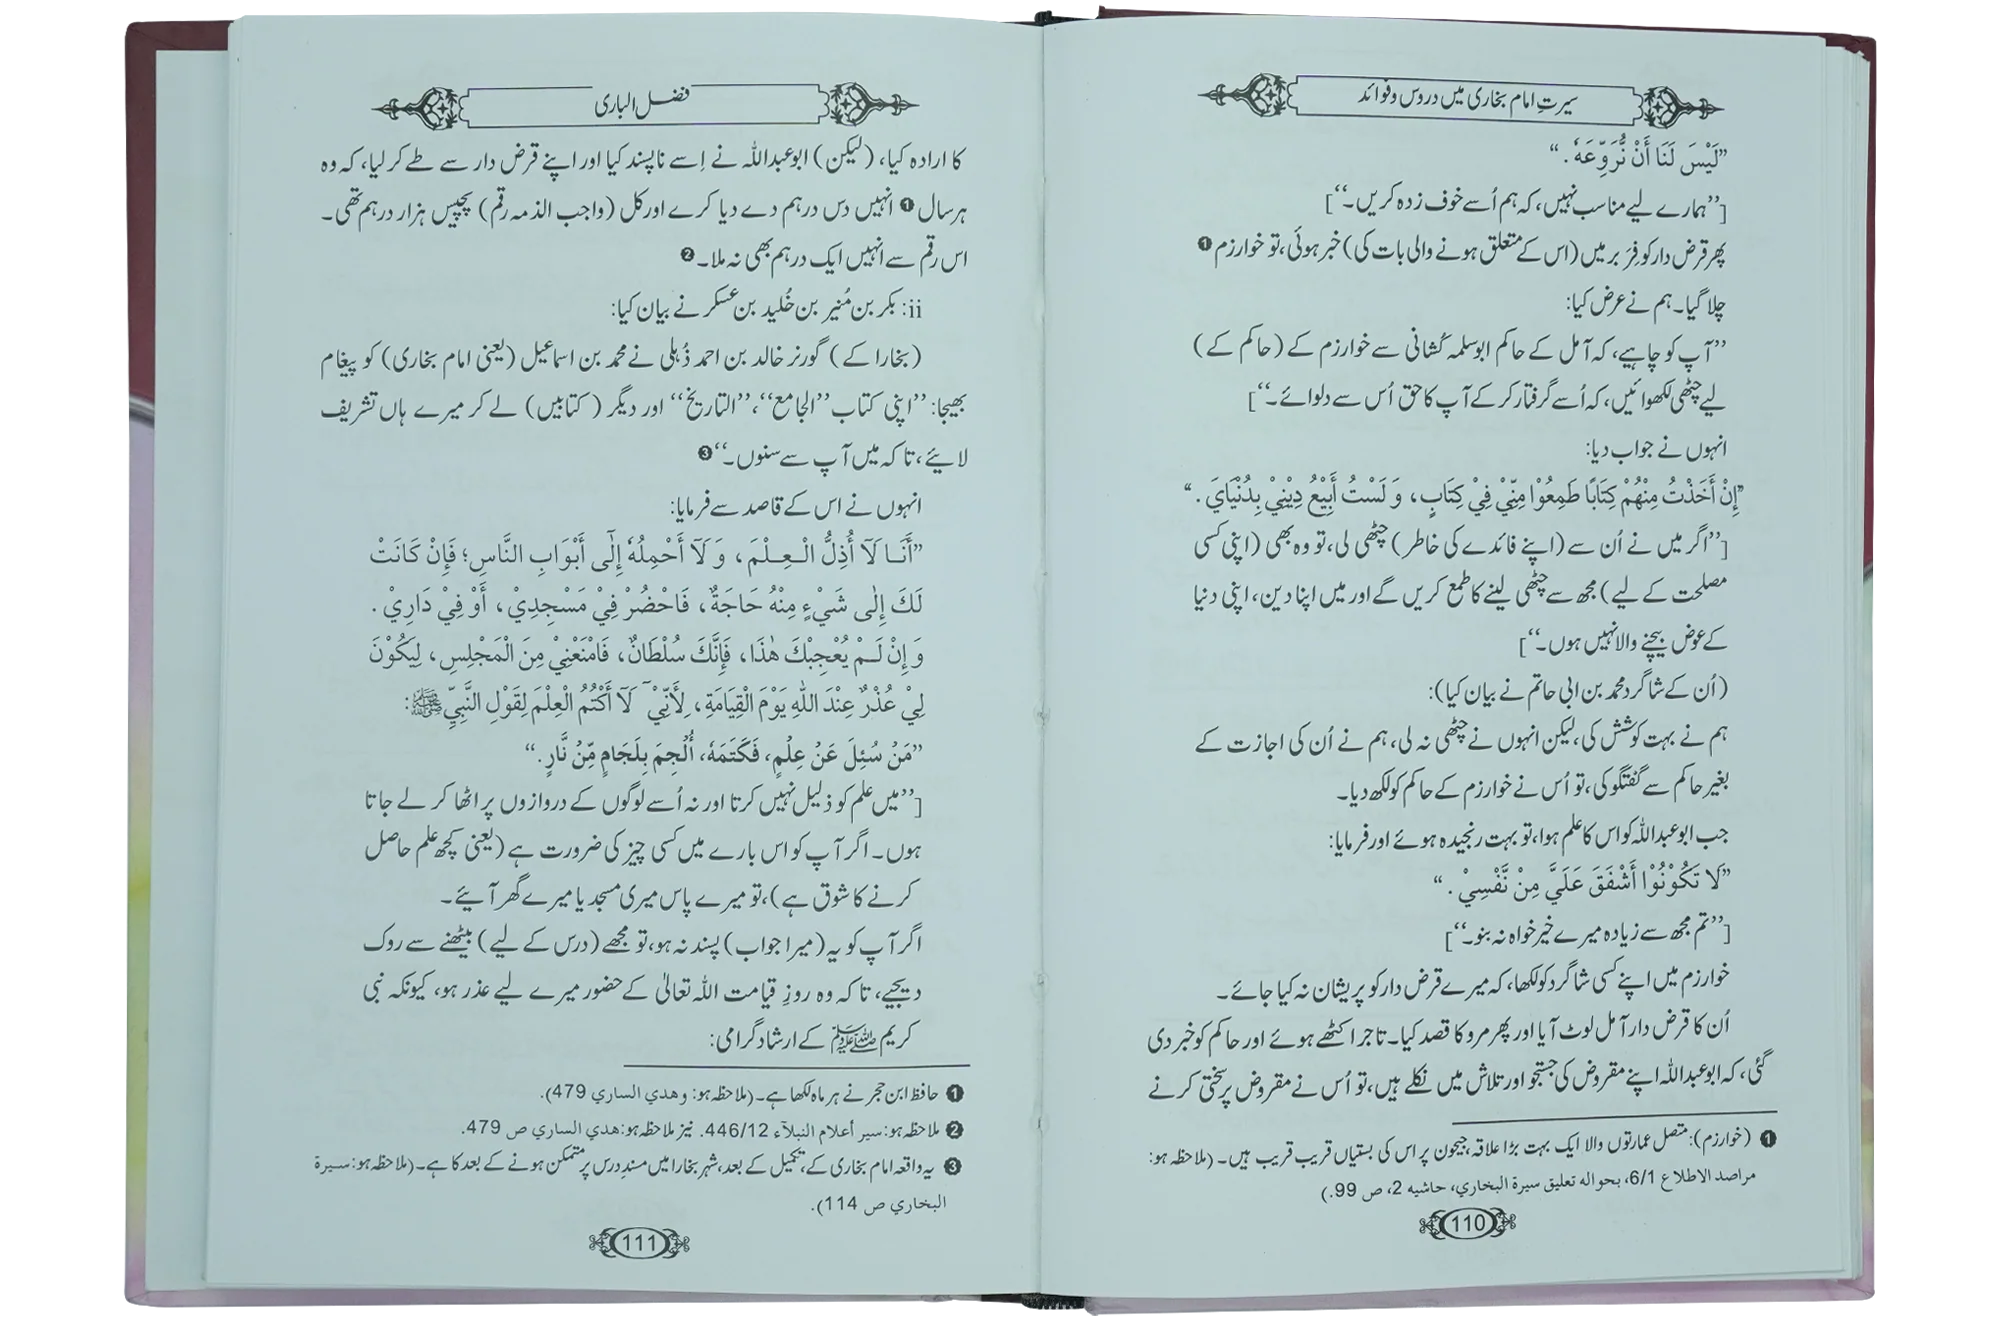 سیرتِ امام بخاری میں دروس و فوائد
”لَيْسَ لَنَا أَنْ نُّرَوِّعَهٗ.“
[’’ہمارے لیے مناسب نہیں، کہ ہم اُسے خوف زدہ کریں۔‘‘]
پھر قرض دار کو فِرَبر میں (اس کے متعلق ہونے والی بات کی) خبر ہوئی، تو خوارزم ❶
چلا گیا۔ ہم نے عرض کیا:
’’آپ کو چاہیے، کہ آمل کے حاکم ابوسلمہ کُشانی سے خوارزم کے (حاکم کے)
لیے چٹھی لکھوائیں، کہ اُسے گرفتار کر کے آپ کا حق اُس سے دلوائے۔‘‘]
انہوں نے جواب دیا:
”إِنْ أَخَذْتُ مِنْهُمْ كِتَابًا طَمِعُوْا مِنِّيْ فِيْ كِتَابٍ، وَلَسْتُ أَبِيْعُ دِيْنِيْ بِدُنْيَايَ.“
[’’اگر میں نے اُن سے (اپنے فائدے کی خاطر) چٹھی لی، تو وہ بھی (اپنی کسی
مصلحت کے لیے) مجھ سے چٹھی لینے کا طمع کریں گے اور میں اپنا دین، اپنی دنیا
کے عوض بیچنے والا نہیں ہوں۔‘‘]
(اُن کے شاگرد محمد بن ابی حاتم نے بیان کیا):
ہم نے بہت کوشش کی، لیکن انہوں نے چٹھی نہ لی، ہم نے اُن کی اجازت کے
بغیر حاکم سے گفتگو کی، تو اُس نے خوارزم کے حاکم کو لکھ دیا۔
جب ابوعبداللہ کو اس کا علم ہوا، تو بہت رنجیدہ ہوئے اور فرمایا:
”لَا تَكُوْنُوْا أَشْفَقَ عَلَيَّ مِنْ نَّفْسِيْ.“
[’’تم مجھ سے زیادہ میرے خیر خواہ نہ بنو۔‘‘]
خوارزم میں اپنے کسی شاگرد کو لکھا، کہ میرے قرض دار کو پریشان نہ کیا جائے۔
اُن کا قرض دار آمل لوٹ آیا اور پھر مرو کا قصد کیا۔ تاجر اکٹھے ہوئے اور حاکم کو خبر دی
گئی، کہ ابوعبداللہ اپنے مقروض کی جستجو اور تلاش میں نکلے ہیں، تو اُس نے مقروض پر سختی کرنے
❶ (خوارزم): متصل عمارتوں والا ایک بہت بڑا علاقہ، جیحون پر اس کی بستیاں قریب قریب ہیں۔ (ملاحظہ ہو:
مراصد الاطلاع 6/1، بحواله تعليق سيرة البخاري، حاشيه 2، ص 99.)
110
فضل الباری
کا ارادہ کیا، (لیکن) ابوعبداللہ نے اِسے ناپسند کیا اور اپنے قرض دار سے طے کر لیا، کہ وہ
ہر سال ❶ انہیں دس درہم دے دیا کرے اور کل (واجب الذمہ رقم) پچیس ہزار درہم تھی۔
اس رقم سے انہیں ایک درہم بھی نہ ملا۔ ❷
ii: بکر بن مُنیر بن خُلید بن عسکر نے بیان کیا:
(بخارا کے) گورنر خالد بن احمد ذُہلی نے محمد بن اسماعیل (یعنی امام بخاری) کو پیغام
بھیجا: ’’اپنی کتاب ’’الجامع‘‘، ’’التاریخ‘‘ اور دیگر (کتابیں) لے کر میرے ہاں تشریف
لائیے، تاکہ میں آپ سے سنوں۔‘‘ ❸
انہوں نے اس کے قاصد سے فرمایا:
”أَنَا لَآ أُذِلُّ الْعِلْمَ، وَلَآ أَحْمِلُهٗ إِلٰٓى أَبْوَابِ النَّاسِ؛ فَإِنْ كَانَتْ
لَكَ إِلٰى شَيْءٍ مِنْهُ حَاجَةٌ، فَاحْضُرْ فِيْ مَسْجِدِيْ، أَوْ فِيْ دَارِيْ.
وَإِنْ لَـمْ يُعْجِبْكَ هٰذَا، فَإِنَّكَ سُلْطَانٌ، فَامْنَعْنِيْ مِنَ الْمَجْلِسِ، لِيَكُوْنَ
لِيْ عُذْرٌ عِنْدَ اللّٰهِ يَوْمَ الْقِيَامَةِ، لِأَنِّيْٓ لَآ أَكْتُمُ الْعِلْمَ لِقَوْلِ النَّبِيِّ ﷺ:
”مَنْ سُئِلَ عَنْ عِلْمٍ، فَكَتَمَهٗ، أُلْجِمَ بِلَجَامٍ مِّنْ نَّارٍ.“
[’’میں علم کو ذلیل نہیں کرتا اور نہ اُسے لوگوں کے دروازوں پر اٹھا کر لے جاتا
ہوں۔ اگر آپ کو اس بارے میں کسی چیز کی ضرورت ہے (یعنی کچھ علم حاصل
کرنے کا شوق ہے)، تو میرے پاس میری مسجد یا میرے گھر آئیے۔
اگر آپ کو یہ (میرا جواب) پسند نہ ہو، تو مجھے (درس کے لیے) بیٹھنے سے روک
دیجیے، تاکہ وہ روزِ قیامت اللہ تعالیٰ کے حضور میرے لیے عذر ہو، کیونکہ نبی
کریم ﷺ کے ارشادِ گرامی:
❶ حافظ ابن حجر نے ہر ماہ لکھا ہے۔ (ملاحظہ ہو: وهدي الساري 479).
❷ ملاحظہ ہو: سير أعلام النبلآء 446/12. نیز ملاحظہ ہو: هدي الساري ص 479.
❸ یہ واقعہ امام بخاری کے، تکمیل کے بعد، شہر بخارا میں مسندِ درس پر متمکن ہونے کے بعد کا ہے۔ (ملاحظہ ہو: سيرة
البخاري ص 114).
111